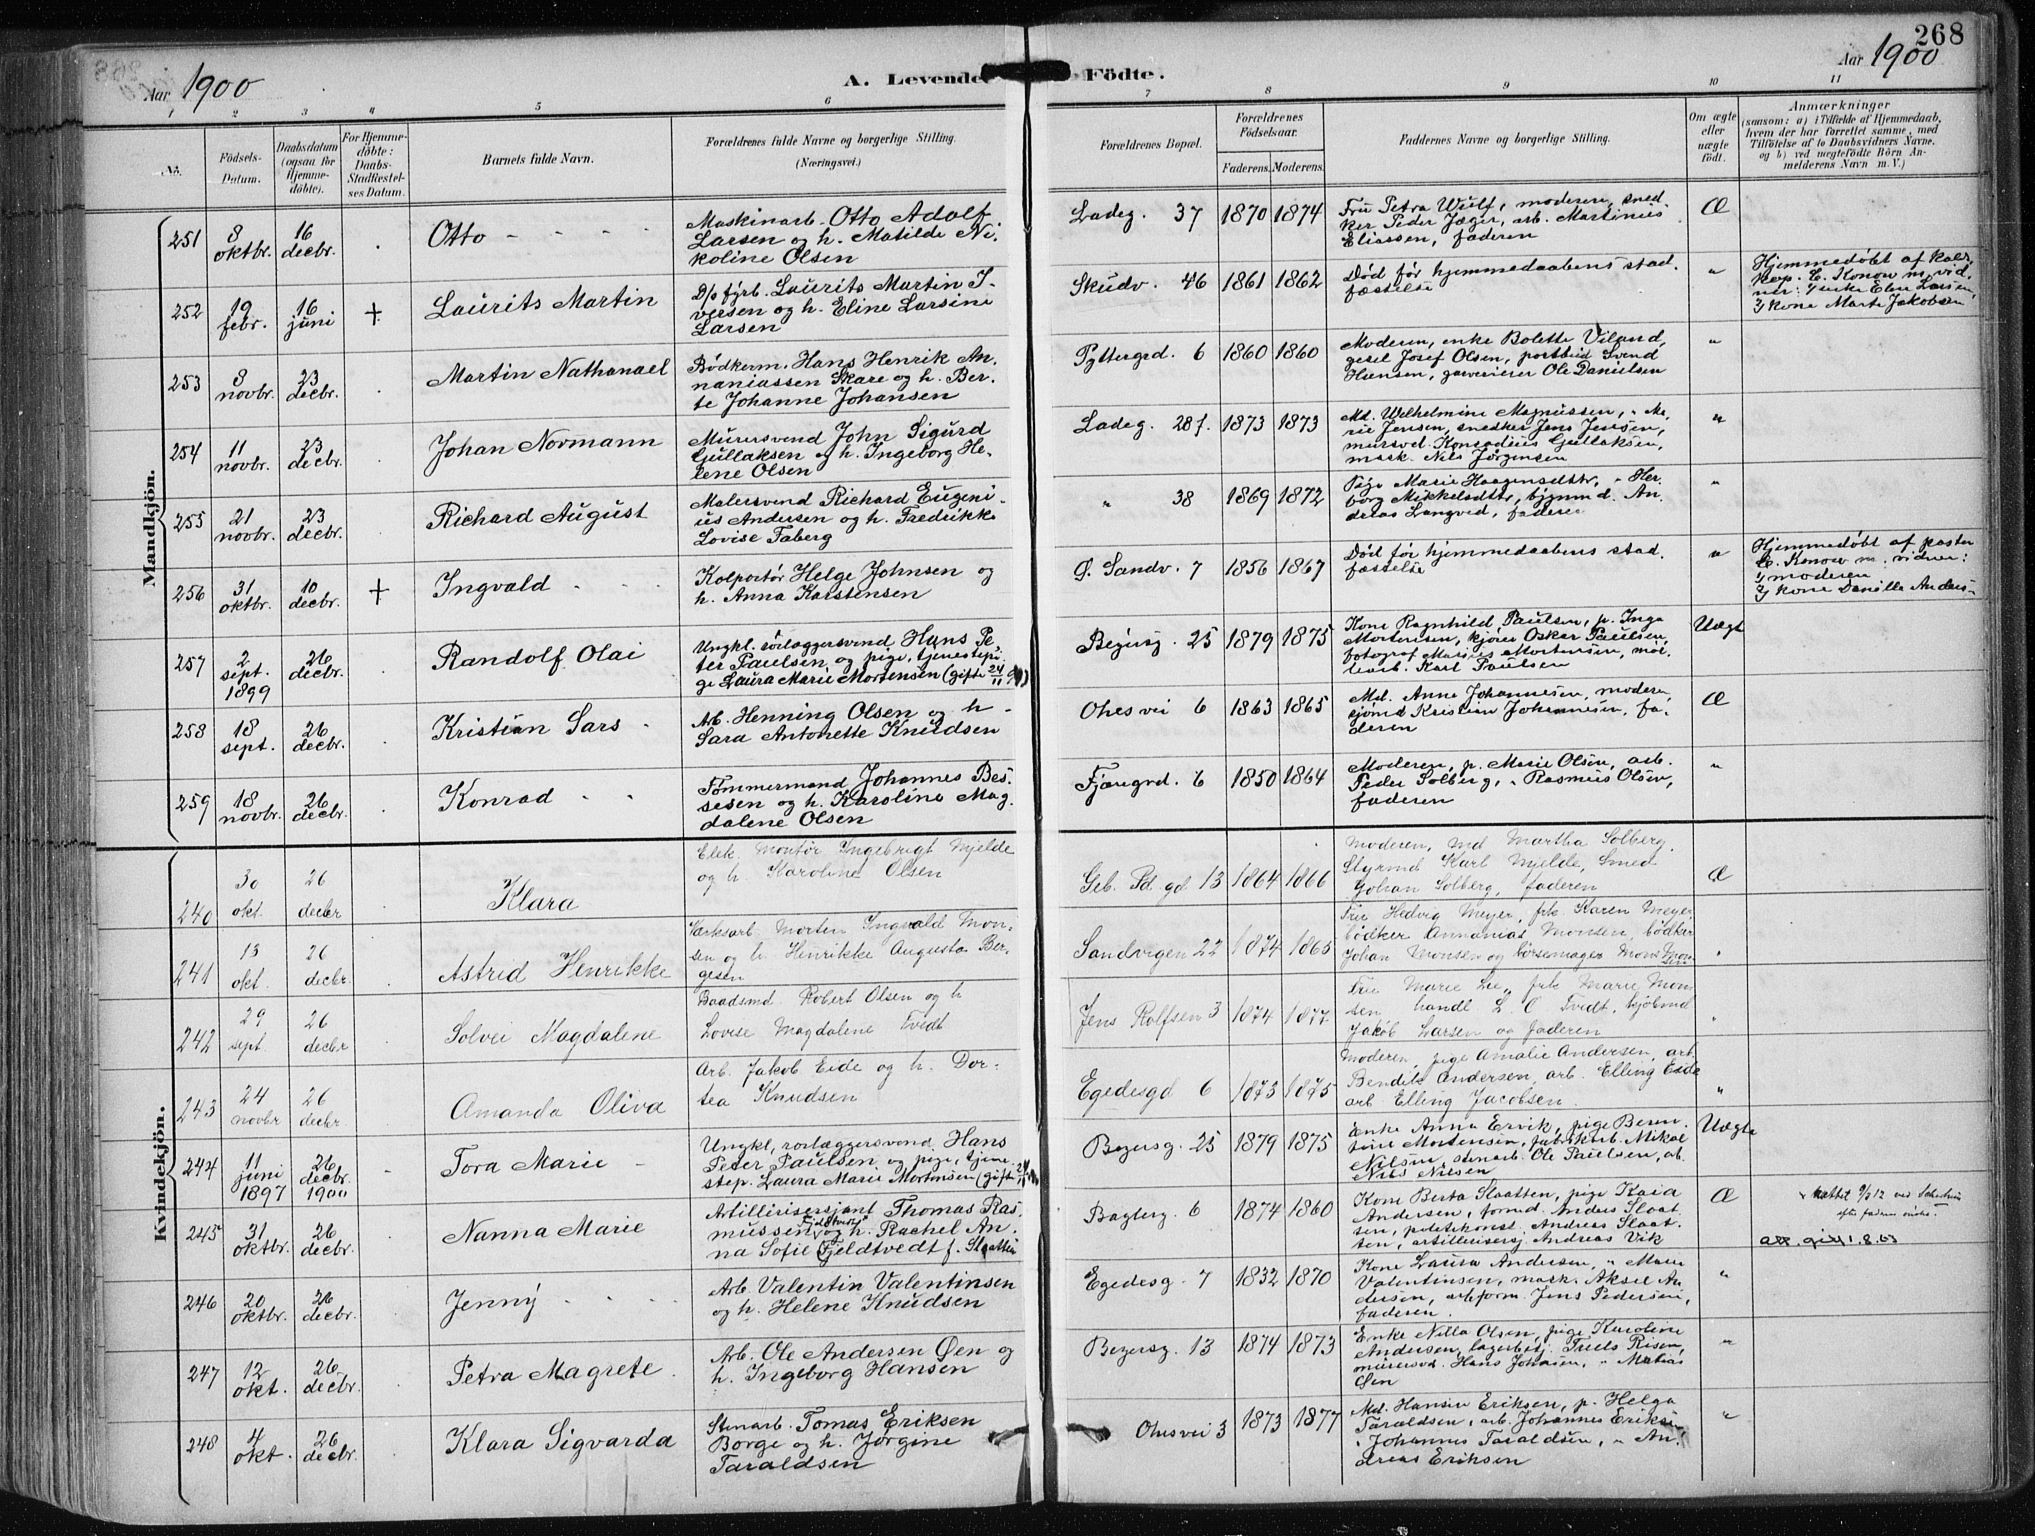 268
Aar 1900
A. Levende Födte.
Aar 1900
1 2 3 4 5 6 7 8 9 10 11
No.
Födsels-
Datum.
Daabsdatum
(ogsaa for
Hjemme-
döbte).
For Hjemme-
döbte:
Daabs-
Stadfæstel-
ses Datum.
Barnets fulde Navn.
Forældrenes fulde Navne og borgerlige Stilling.
(Næringsvei.)
Forældrenes Bopæl.
Forældrenes
Födselsaar.
Faderens. Moderens.
Faddernes Navne og borgerlige Stilling.
Om ægte
eller
uægte
födt.
Anmærkninger
(saasom: a) i Tilfælde af Hjemmedaab,
hvem der har forrettet samme, med
Tilföielse af to Daabsvidners Navne,
og b) ved uegtefödte Börn An-
melderens Navn m. V.)
Mandkjön.
251
8
oktbr.
16
decbr.
Otto
Maskinarb. Otto Adolf
Larsen og h. Matilde Ni-
koline Olsen
Ladeg. 37
1870 1874
Fru Petra Wulf, moderen, sned
ker Peder Jæger, arb. Martinius
Eliassen, faderen
Æ
252
19
febr.
16
juni
+
Laurits Martin
D/s fyrb. Laurits Martin I-
versen og h. Eline Larsine
Larsen
Skudv. 46
1861 1862
Død før hjemmedaabens stad.
fæstelse
"
Hjemmedøbt af
C. Konow m. vid.
ner: 1/ enke Elen Larsen,
2/ kone Marta Jakobsen
253
8
novbr.
23
decbr.
Martin Nathanael
Bødkerm. Hans Henrik An-
naniassen Skare og h. Ber-
te Johanne Johansen
Pyttergrd. 6
1860 1860
Moderen, enke Bolette Viland,
gesel Josef Olsen, portbud Svend
Hansen, garverier Ole Danielsen
"
254
11
novbr.
23
decbr.
Johan Normann
Murersvend John Sigurd
Gullaksen og h. Ingeborg He-
lene Olsen
Ladeg. 28f.
1873 1873
Md. Wilhelmine Magnussen, " Ma-
rie Jensen, snedker Jens Jensen,
mursvd. Konradius Gullaksen,
mask. Nils Jørgensen
"
255
21
novbr.
23
decbr.
Richard August
Malersvend Richard Eugeni-
us Andersen og h. Fredrikke
Lovise Faberg
" 38
1869 1872
Pige Marie Haagensdttr, " Her-
borg Mikkelsdttr, bygnmd. An-
dreas Langved, faderen
"
256
31
oktbr.
10
decbr.
+
Ingvald
Kolportør Helge Johnsen og
h. Anna Karstensen
Ø. Sandv. 7
1856 1867
Død før hjemmedaabens stad.
fæstelse
"
Hjemmedøbt af pastor
C. Konow m. vidner:
1/ moderen
2/ kone Danilla Anders-
257
2
sept.
1899
26
decbr.
Randolf Olai
Ungkl. rørlæggersvend Hans Pe-
ter Paulsen og pige, tjenestepi-
ge Laura Marie Mortensen (gifte 24/11 )
Bøgersg. 25
1879 1875
Kone Ragnhild Paulsen, p. Inga
Mortensen, kjører Oskar Paulsen,
fotograf Marius Mortensen, møl-
learb. Karl Paulsen
Uægt
258
18
sept.
26
decbr.
Kristian Sars
Arb. Henning Olsen og h
Sara Antonette Knudsen
Ohesvei 6
1863 1865
Md. Anne Johannesen, moderen,
sjømd Kristian Johannesen, fa-
deren
Æ
259
18
novbr.
26
decbr.
Konrad
Tømmermand Johannes Bes-
sesen og h. Karoline Mag-
dalene Olsen
Fjøregrd. 6
1850 1864
Moderen, p. Marie Olsen, arb.
Peder Solberg, " Rasmus Olsen,
faderen
"
Kvindekjön.
240
30
okt.
26
decbr
Klara
Elek. Montør Ingebrigt Mjelde
og h. Karoline Olsen
Geb. Pd. gd 13
1864 1866
Moderen, Md Martha Solberg.
Styrmd Karl Mjelde, Smed
Johan Solberg, faderen
Æ
241
13
okt.
26
decbr
Astrid Henrikke
Værksarb Morten Ingvald Mon-
sen og h. Henrikke Augusta Ber-
gesen
Sandvigen 22
1874 1865
Fru Hedvig Meyer, frk Karen Meyer,
bødker Annanias Monsen, bødker
Johan Monsen og børsemager Mons Mon-
sen
"
242
29
sept
26
decbr
Solvei Magdalene
Baadsmd. Robert Olsen og h
Lovise Magdalene Tvedt
Jens Rolfsen 3
1874 1877
Fru Marie Lie, frk Marie Mon-
sen, handl L O Tvedt, kjøbmd
Jakob Larsen og faderen
"
243
24
novbr
26
decbr
Amanda Oliva
Arb. Jakob Eide og h. Dor-
tea Knudsen
Egedesgd 6
1873 1875
Moderen, pige Amalie Andersen, arb.
Bendik Andersen, arb. Elling Eide
arb Elling Jacobsen
"
244
11
juni
1897
26
decbr.
1900
Tora Marie
Ungkl, rørlæggersvend Hans
Peter Paulsen og pige, tjene-
step. Laura Marie Mortensen (gifte 24/11
Bøgersg. 25
1879 1875
Enke Anna Ervik, pige Bern-
tine Mortensen, fabrikarb. Mikal
Nilsen, stenarb. Ole Paulsen, arb.
Nils Nilsen
Uægte
245
31
oktbr.
26
decbr.
Nanna Marie
Artillerisersjant Thomas Ras-
mussen og h. Rachel An-
na Sofie Fjeldtvedt f. Slaatten
Bagterg. 6
1874 1860
Kone Berta Slaatten, pige Kaia
Andersen, formd. Anders Slaat-
ten, politikonst. Andreas Slaat-
ten, artillerisersj. Andreas Vik
Æ
246
20
oktbr.
26
decbr.
Jenny
Arb. Valentin Valentinsen
og h. Helene Knudsen
Egedesg. 7
1832 1870
Kone Laura Andersen, " Marie
Valentinsen, mask. Aksel An-
dersen, arbform. Jens Pedersen,
faderen
"
247
12
okt.
26
decbr.
Petra Magrete
Arb. Ole Andersen Øen og
h. Ingeborg Hansen
Bøgersg. 13
1874 1873
Enke Nilla Olsen, pige Karoline
Andersen, lagerbetj. Truls Risen,
murersvd. Hans Johnsen, " Matias
Øen
"
248
4
okt.
26
decbr.
Klara Sigvarda
Stenarb. Tomas Eriksen
Borge og h. Jørgine
Taraldsen
Ohesvei 3
1873 1877
Md. Hansine Eriksen, p. Helga
Taraldsen, arb. Johannes Eriksen
" Johannes Taraldsen, " An-
dreas Eriksen
"